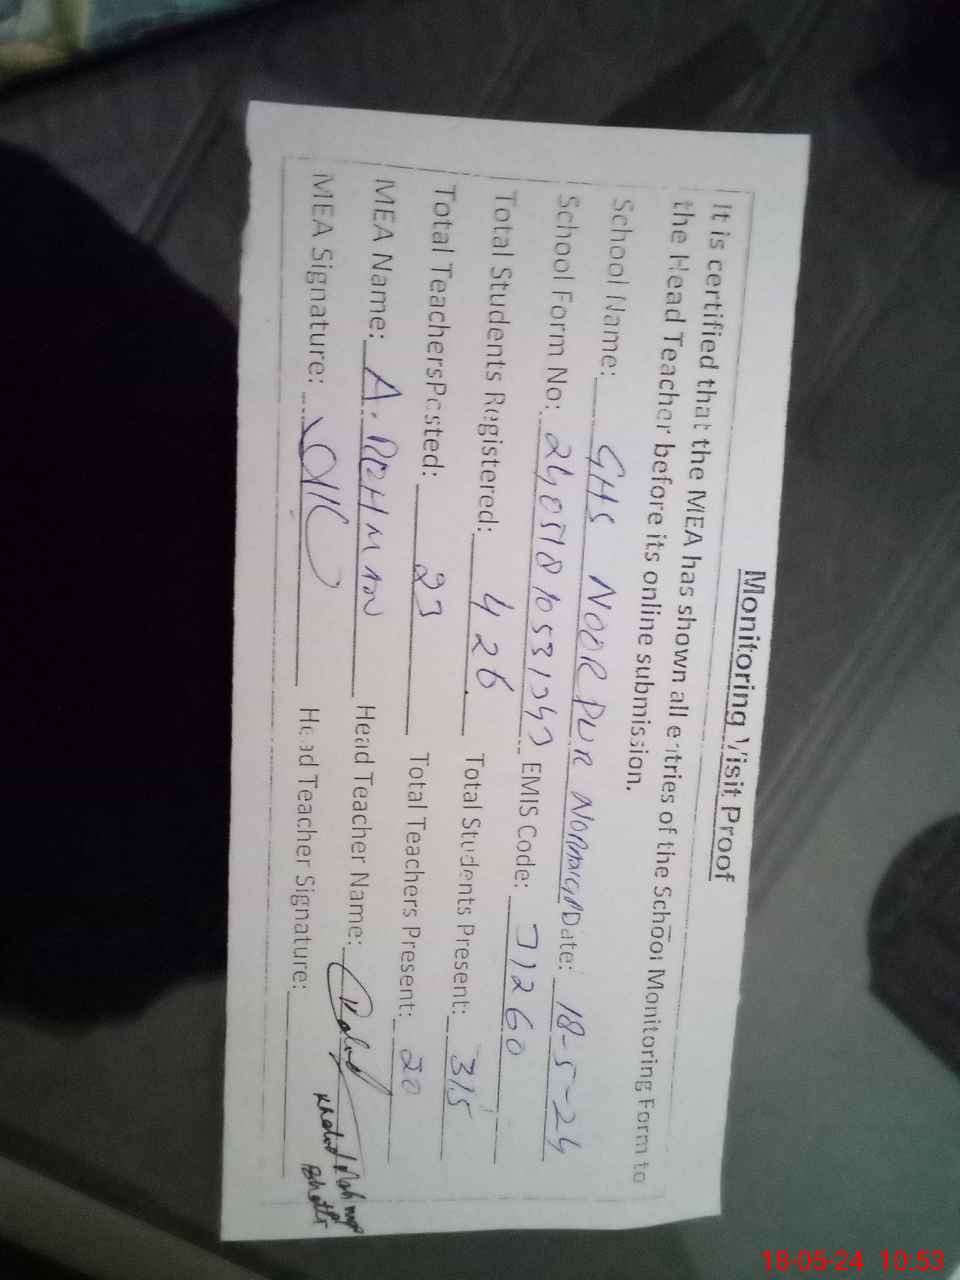 Monitoring Visit Proof
It is certified that the MEA has shown all entries of the School Monitoring Form to
the Head Teacher before its online submission.
School Name: GHS NOOR PUR Date: 18-5-24
School Form No: EMIS Code: 31260
Total Students Registered: 426 Total Students Present: 315
Total Teachers Posted: 23 Total Teachers Present: 20
MEA Name: A. REHMAN Head Teacher Name: Khalid
MEA Signature: Head Teacher Signature:
Khalid Mahmood
Bhatti
18-05-24 10:53